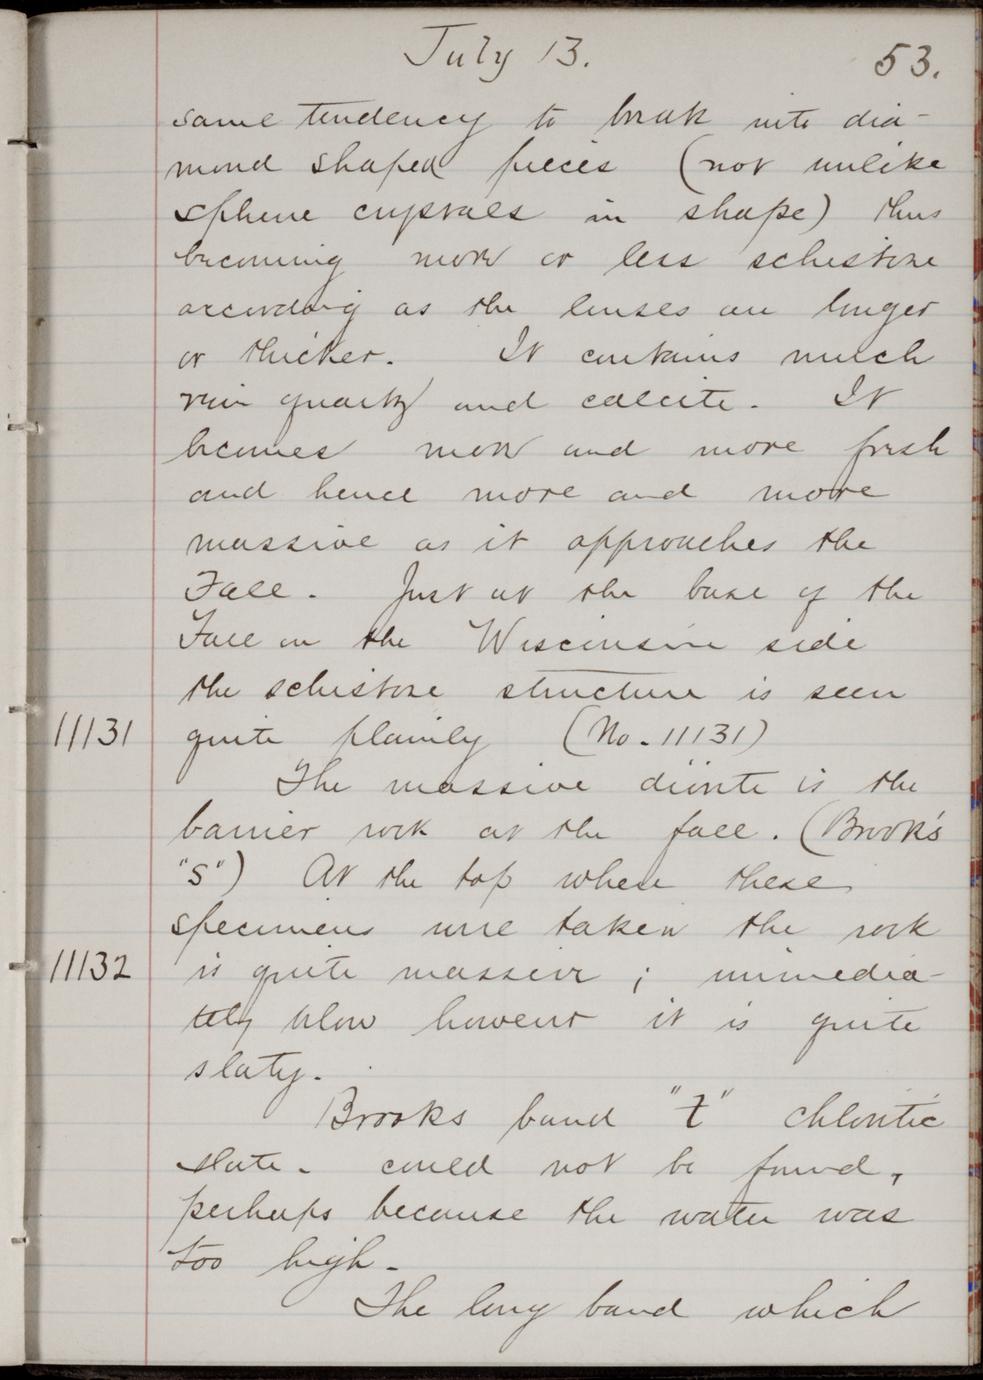 July 13.
53.
same tendency to break into dia-
mond shaped pieces (not unlike
sphene crystals in shape) thus
becoming more or less schistose
according as the lenses are longer
or thicker. It contains much
vein quartz and calcite. It
becomes more and more fresh
and hence more and more
massive as it approaches the
Fall. Just at the base of the
Fall on the Wisconsin side
the schistose structure is seen
11131 quite plainly (No. 11131)
The massive diorite is the
barrier rock at the fall. (Brook's
"S") At the top where these
specimens were taken the rock
11132 is quite massive; immedia-
tely below however it is quite
slaty.
Brooks band "t" chloritic
slate. could not be found,
perhaps because the water was
too high.
The long band which